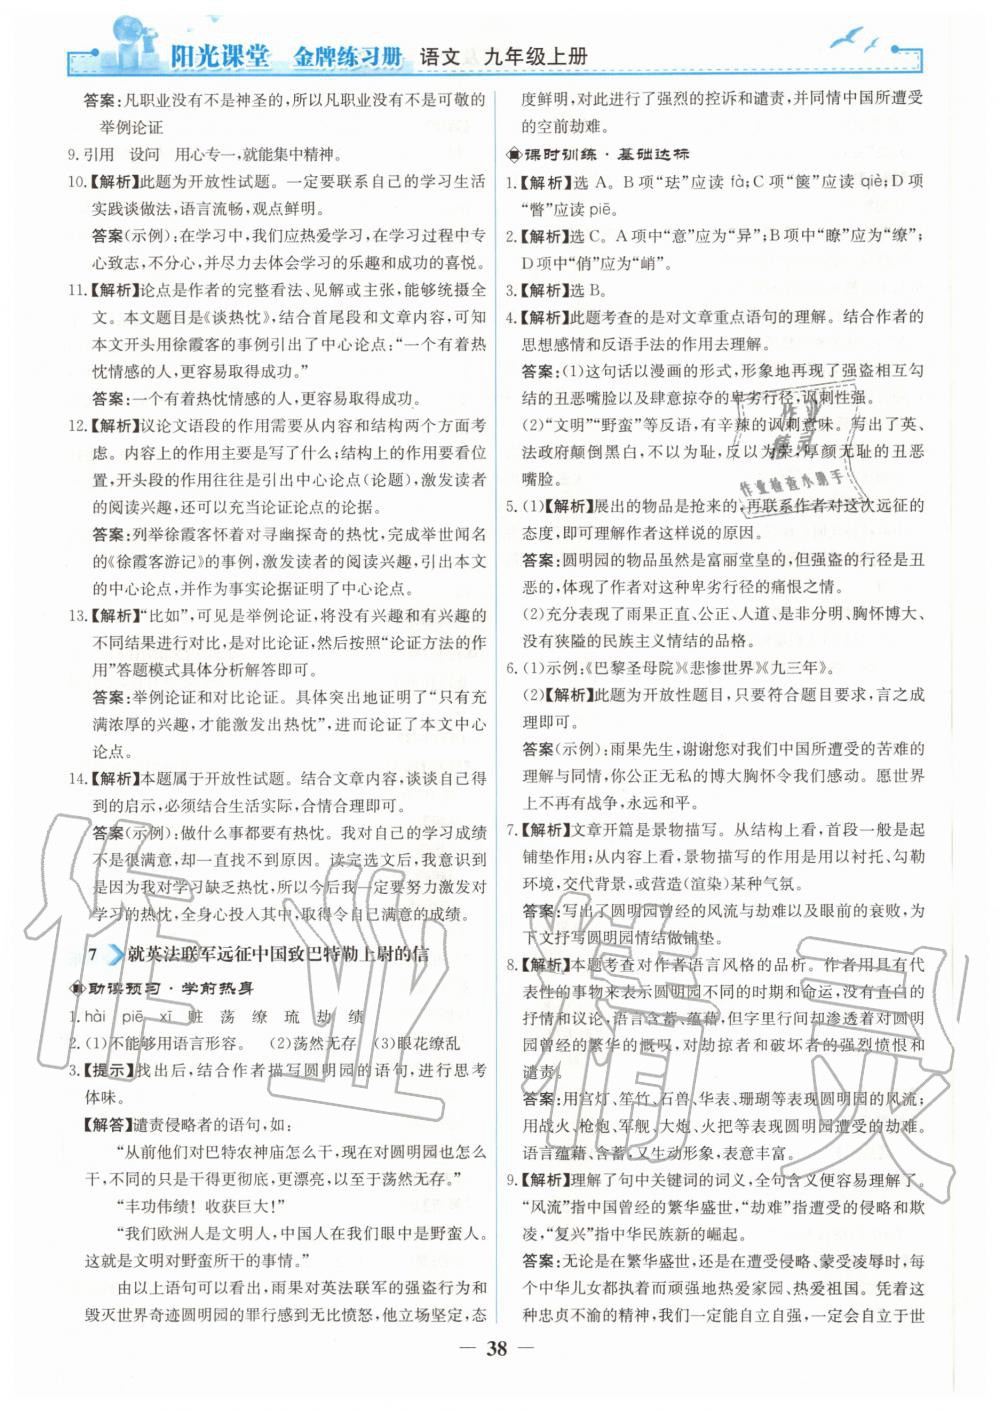 阳光课堂 金牌练习册 语文 九年级上册
答案:凡职业没有不是神圣的,所以凡职业没有不是可敬的
举例论证
9. 引用 设问 用心专一,就能集中精神。
10.【解析】此题为开放性试题。一定要联系自己的学习生活
实践谈做法,语言流畅,观点鲜明。
答案(示例):在学习中,我们应热爱学习,在学习过程中专
心致志,不分心,并尽力去体会学习的乐趣和成功的喜悦。
11.【解析】论点是作者的完整看法、见解或主张,能够统摄全
文。本文题目是《谈热忱》,结合首尾段和文章内容,可知
本文开头用徐霞客的事例引出了中心论点:“一个有着热
忱情感的人,更容易取得成功。”
答案:一个有着热忱情感的人,更容易取得成功。
12.【解析】议论文语段的作用需要从内容和结构两个方面考
虑。内容上的作用主要是写了什么;结构上的作用要看位
置,开头段的作用往往是引出中心论点(论题),激发读者
的阅读兴趣,还可以充当论证论点的论据。
答案:列举徐霞客怀着对寻幽探奇的热忱,完成举世闻名
的《徐霞客游记》的事例,激发读者的阅读兴趣,引出本文
的中心论点,并作为事实论据证明了中心论点。
13.【解析】“比如”,可见是举例论证,将没有兴趣和有兴趣的
不同结果进行对比,是对比论证,然后按照“论证方法的作
用”答题模式具体分析解答即可。
答案:举例论证和对比论证。具体突出地证明了“只有充
满浓厚的兴趣,才能激发出热忱”,进而论证了本文中心
论点。
14.【解析】本题属于开放性试题。结合文章内容,谈谈自己得
到的启示,必须结合生活实际,合情合理即可。
答案(示例):做什么事都要有热忱。我对自己的学习成绩
不是很满意,却一直找不到原因。读完选文后,我意识到
是因为我对学习缺乏热忱,所以今后我一定要努力激发对
学习的热忱,全身心投入其中,取得令自己满意的成绩。
7 就英法联军远征中国致巴特勒上尉的信
助读预习·学前热身
1. hài piē xī 赃 荡 缭 琉 劫 绩
2. (1)不能够用语言形容。 (2)荡然无存 (3)眼花缭乱
3.【提示】找出后,结合作者描写圆明园的语句,进行思考
体味。
【解答】谴责侵略者的语句,如:
“从前他们对巴特农神庙怎么干,现在对圆明园也怎么
干,不同的只是干得更彻底,更漂亮,以至于荡然无存。”
“丰功伟绩! 收获巨大!”
“我们欧洲人是文明人,中国人在我们眼中是野蛮人。
这就是文明对野蛮所干的事情。”
由以上语句可以看出,雨果对英法联军的强盗行为和
毁灭世界奇迹圆明园的罪行感到无比愤怒,他立场坚定,态
度鲜明,对此进行了强烈的控诉和谴责,并同情中国所遭受
的空前劫难。
课时训练·基础达标
1.【解析】选 A。B 项“珐”应读 fà;C 项“箧”应读 qiè;D 项
“瞥”应读 piē。
2.【解析】选 C。A 项中“意”应为“异”;B 项中“瞭”应为“缭”;
D 项中“俏”应为“峭”。
3.【解析】选 B。
4.【解析】此题考查的是对文章重点语句的理解。结合作者的
思想感情和反语手法的作用去理解。
答案:(1)这句话以漫画的形式,形象地再现了强盗相互勾
结的丑恶嘴脸以及肆意掠夺的卑劣行径,讽刺性强。
(2)“文明”“野蛮”等反语,有辛辣的讽刺意味。写出了英、
法政府颠倒黑白,不以为耻,反以为荣,厚颜无耻的丑恶
嘴脸。
5. (1)【解析】展出的物品是抢来的,再联系作者对这次远征的
态度,即可理解作者这样说的原因。
答案:圆明园的物品虽然是富丽堂皇的,但强盗的行径是丑
恶的,体现了作者对这种卑劣行径的痛恨之情。
(2)充分表现了雨果正直、公正、人道、是非分明,胸怀博大、
没有狭隘的民族主义情结的品格。
6. (1)示例:《巴黎圣母院》《悲惨世界》《九三年》。
(2)【解析】此题为开放性题目,只要符合题目要求,言之成
理即可。
答案(示例):雨果先生,谢谢您对我们中国所遭受的苦难的
理解与同情,你公正无私的博大胸怀令我们感动。愿世界
上不再有战争,永远和平。
7.【解析】文章开篇是景物描写。从结构上看,首段一般是起
铺垫作用;从内容上看,景物描写的作用是用以衬托、勾勒
环境,交代背景,或营造(渲染)某种气氛。
答案:写出了圆明园曾经的风流与劫难以及眼前的衰败,为
下文抒写圆明园情结做铺垫。
8.【解析】本题考查对作者语言风格的品析。作者用具有代
表性的事物来表示圆明园不同的时期和命运,没有直白的
抒情和议论,语言含蓄、蕴藉,但字里行间却渗透着对圆明
园曾经的繁华的慨叹,对劫掠者和破坏者的强烈愤恨和
谴责。
答案:用宫灯、笙竹、石兽、华表、珊瑚等表现圆明园的风流;
用战火、枪炮、军舰、大炮、火把等表现圆明园遭受的劫难。
语言蕴藉、含蓄,又生动形象,表意丰富。
9.【解析】理解了句中关键词的词义,全句含义便可理解了。
“风流”指中国曾经的繁华盛世,“劫难”指遭受的侵略和欺
凌,“复兴”指中华民族新的崛起。
答案:无论是在繁华盛世,还是在遭受侵略、蒙受凌辱时,每
个中华儿女都执着而顽强地热爱家园、热爱祖国。凭着这
种忠贞不渝的精神,我们一定能自立自强,一定会自立于世
38
作业精灵
作业检查小助手
作业精灵